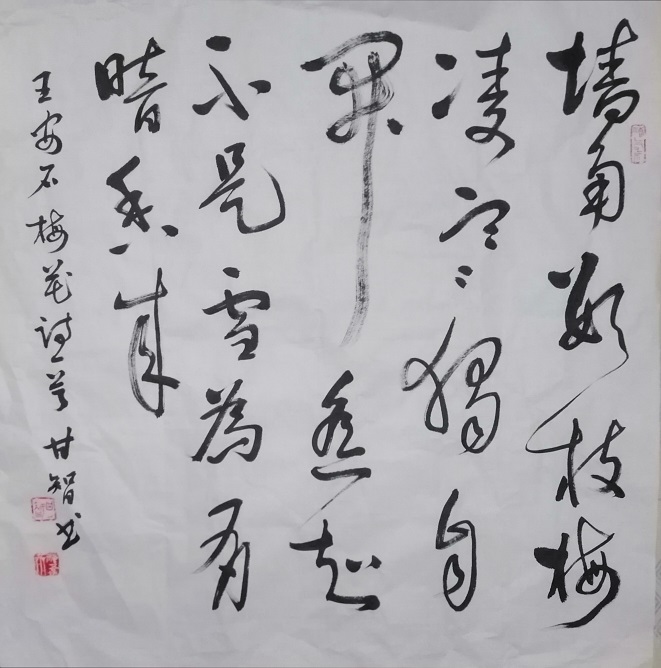 墙角数枝梅
凌寒獨自
開遥知
不是雪為有
暗香来
王安石梅花诗一首甘智书